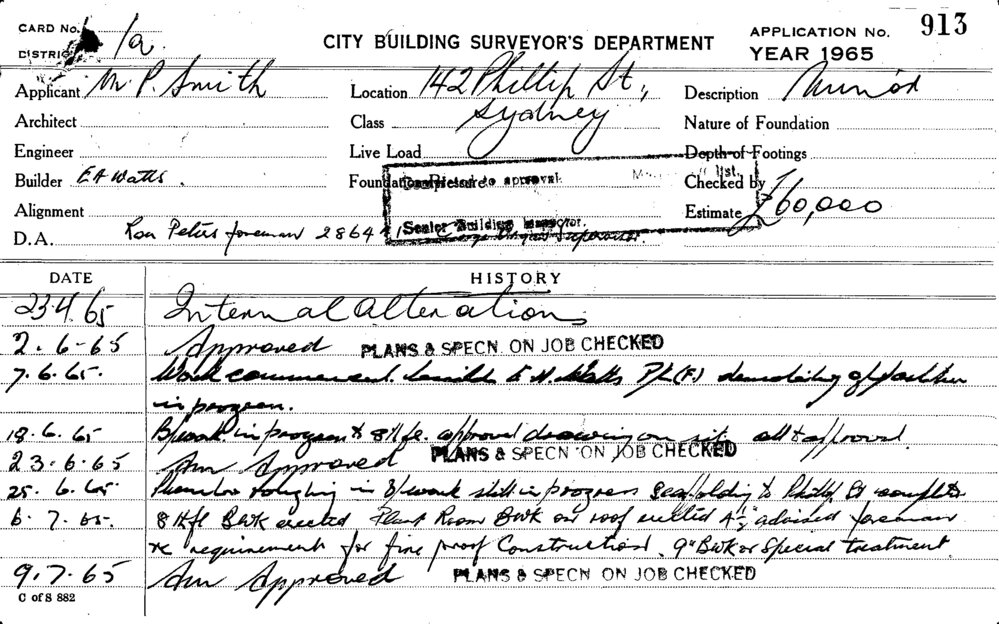 CARD No.
DISTRICT 1a.
CITY BUILDING SURVEYOR'S DEPARTMENT
APPLICATION No. 913
YEAR 1965
Applicant Mr P. Smith Location 142 Phillip St., Description
Architect Class Sydney Nature of Foundation
Engineer Live Load Depth of Footings
Builder E A Watts. Foundation Pressure list. Checked by
to approval
Alignment Senior Building Inspector. Estimate £60,000
D.A. Ron Peters foreman 28644
DATE HISTORY
23.4.65 Internal Alterations
2.6-65 Approved PLANS & SPECN. ON JOB CHECKED
7.6.65. Work commenced. Watts P/L (F.) demolishing of
in progress.
18.6.65 B/work in progress to 8th fl. approved drawing on site all to approval
23.6.65 Am Approved PLANS & SPECN ON JOB CHECKED
25.6.65. Plumber roughing in B/work still in progress Scaffolding to Phillip St complete
6.7.65. 8th fl Bwk erected Plant Room Bwk on roof erected 4½" advised foreman
re requirements for fire proof Construction. 9" Bwk or Special treatment.
9.7.65 Am Approved PLANS & SPECN ON JOB CHECKED
C of S 882